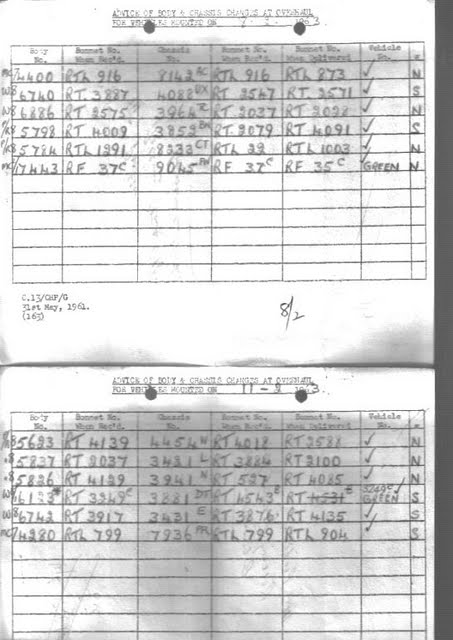 ADVICE OF BODY & CHASSIS CHANGES AT OVERHAUL
FOR VEHICLES MOUNTED ON 1963
Body No. Bonnet No. When Rec'd. Chassis No. Bonnet No. When Rec'd. Bonnet No. When Delivered Vehicle No.
MC 7400 RTL 916 8142 AC RTL 916 RTL 873 ✓ N
W8 6740 RT 3887 4088 UX RT 2547 RT 2571 ✓ S
W8 6886 RT 2575 3964 RT 2037 RT 2028 ✓ N
5798 RT 4009 3852 RT 2079 RT 4091 ✓ S
5784 RTL 1291 8232 CT RTL 29 RTL 1003 ✓ N
MC 7443 RF 37c 9045 RF 37c RF 35c GREEN N
C.13/CHF/G
31st May, 1961.
(163)
8/2
ADVICE OF BODY & CHASSIS CHANGES AT OVERHAUL
FOR VEHICLES MOUNTED ON 11-2 1963
Body No. Bonnet No. When Rec'd. Chassis No. Bonnet No. When Rec'd. Bonnet No. When Delivered Vehicle No.
5623 RT 4139 4454 N RT 4018 RT 2588 ✓ N
8 5837 RT 2037 3421 L RT 3884 RT 2100 ✓ N
8 5826 RT 4129 3941 N RT 527 RT 4085 ✓ N
W8 RT 3249 3881 DT RT 4543 E RT 4531 E GREEN S
W8 6742 RT 3917 3431 E RT 3876 RT 4135 ✓ S
MC 7480 RTL 799 7936 PR RTL 799 RTL 904 ✓ S